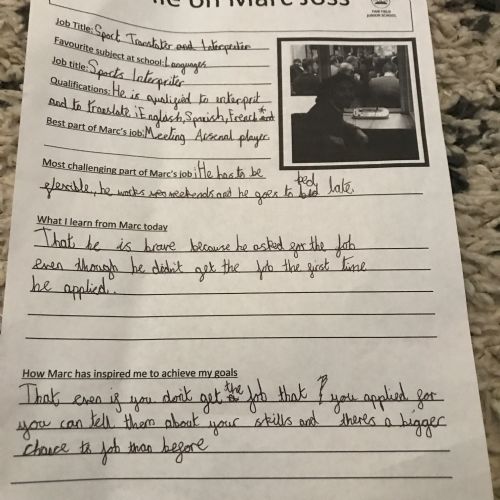 on Marc Joss
FAIR FIELD
JUNIOR SCHOOL
Job Title: Sport Translater and Interpriter
Favourite subject at school: Languages
Job title: Sports Interpriter
Qualifications: He is qualified to interprit
and to translate : English, Spanish, French
Best part of Marc's job: Meeting Arsenal player.
Most challenging part of Marc's job: He has to be
flexible, he works weekends and he goes to bed late.
What I learn from Marc today
That he is brave because he asked for the job
even though he didn't get the job the first time
he applied.
How Marc has inspired me to achieve my goals
That even if you don't get the job that you applied for
you can tell them about your skills and there's a bigger
chance to job than before